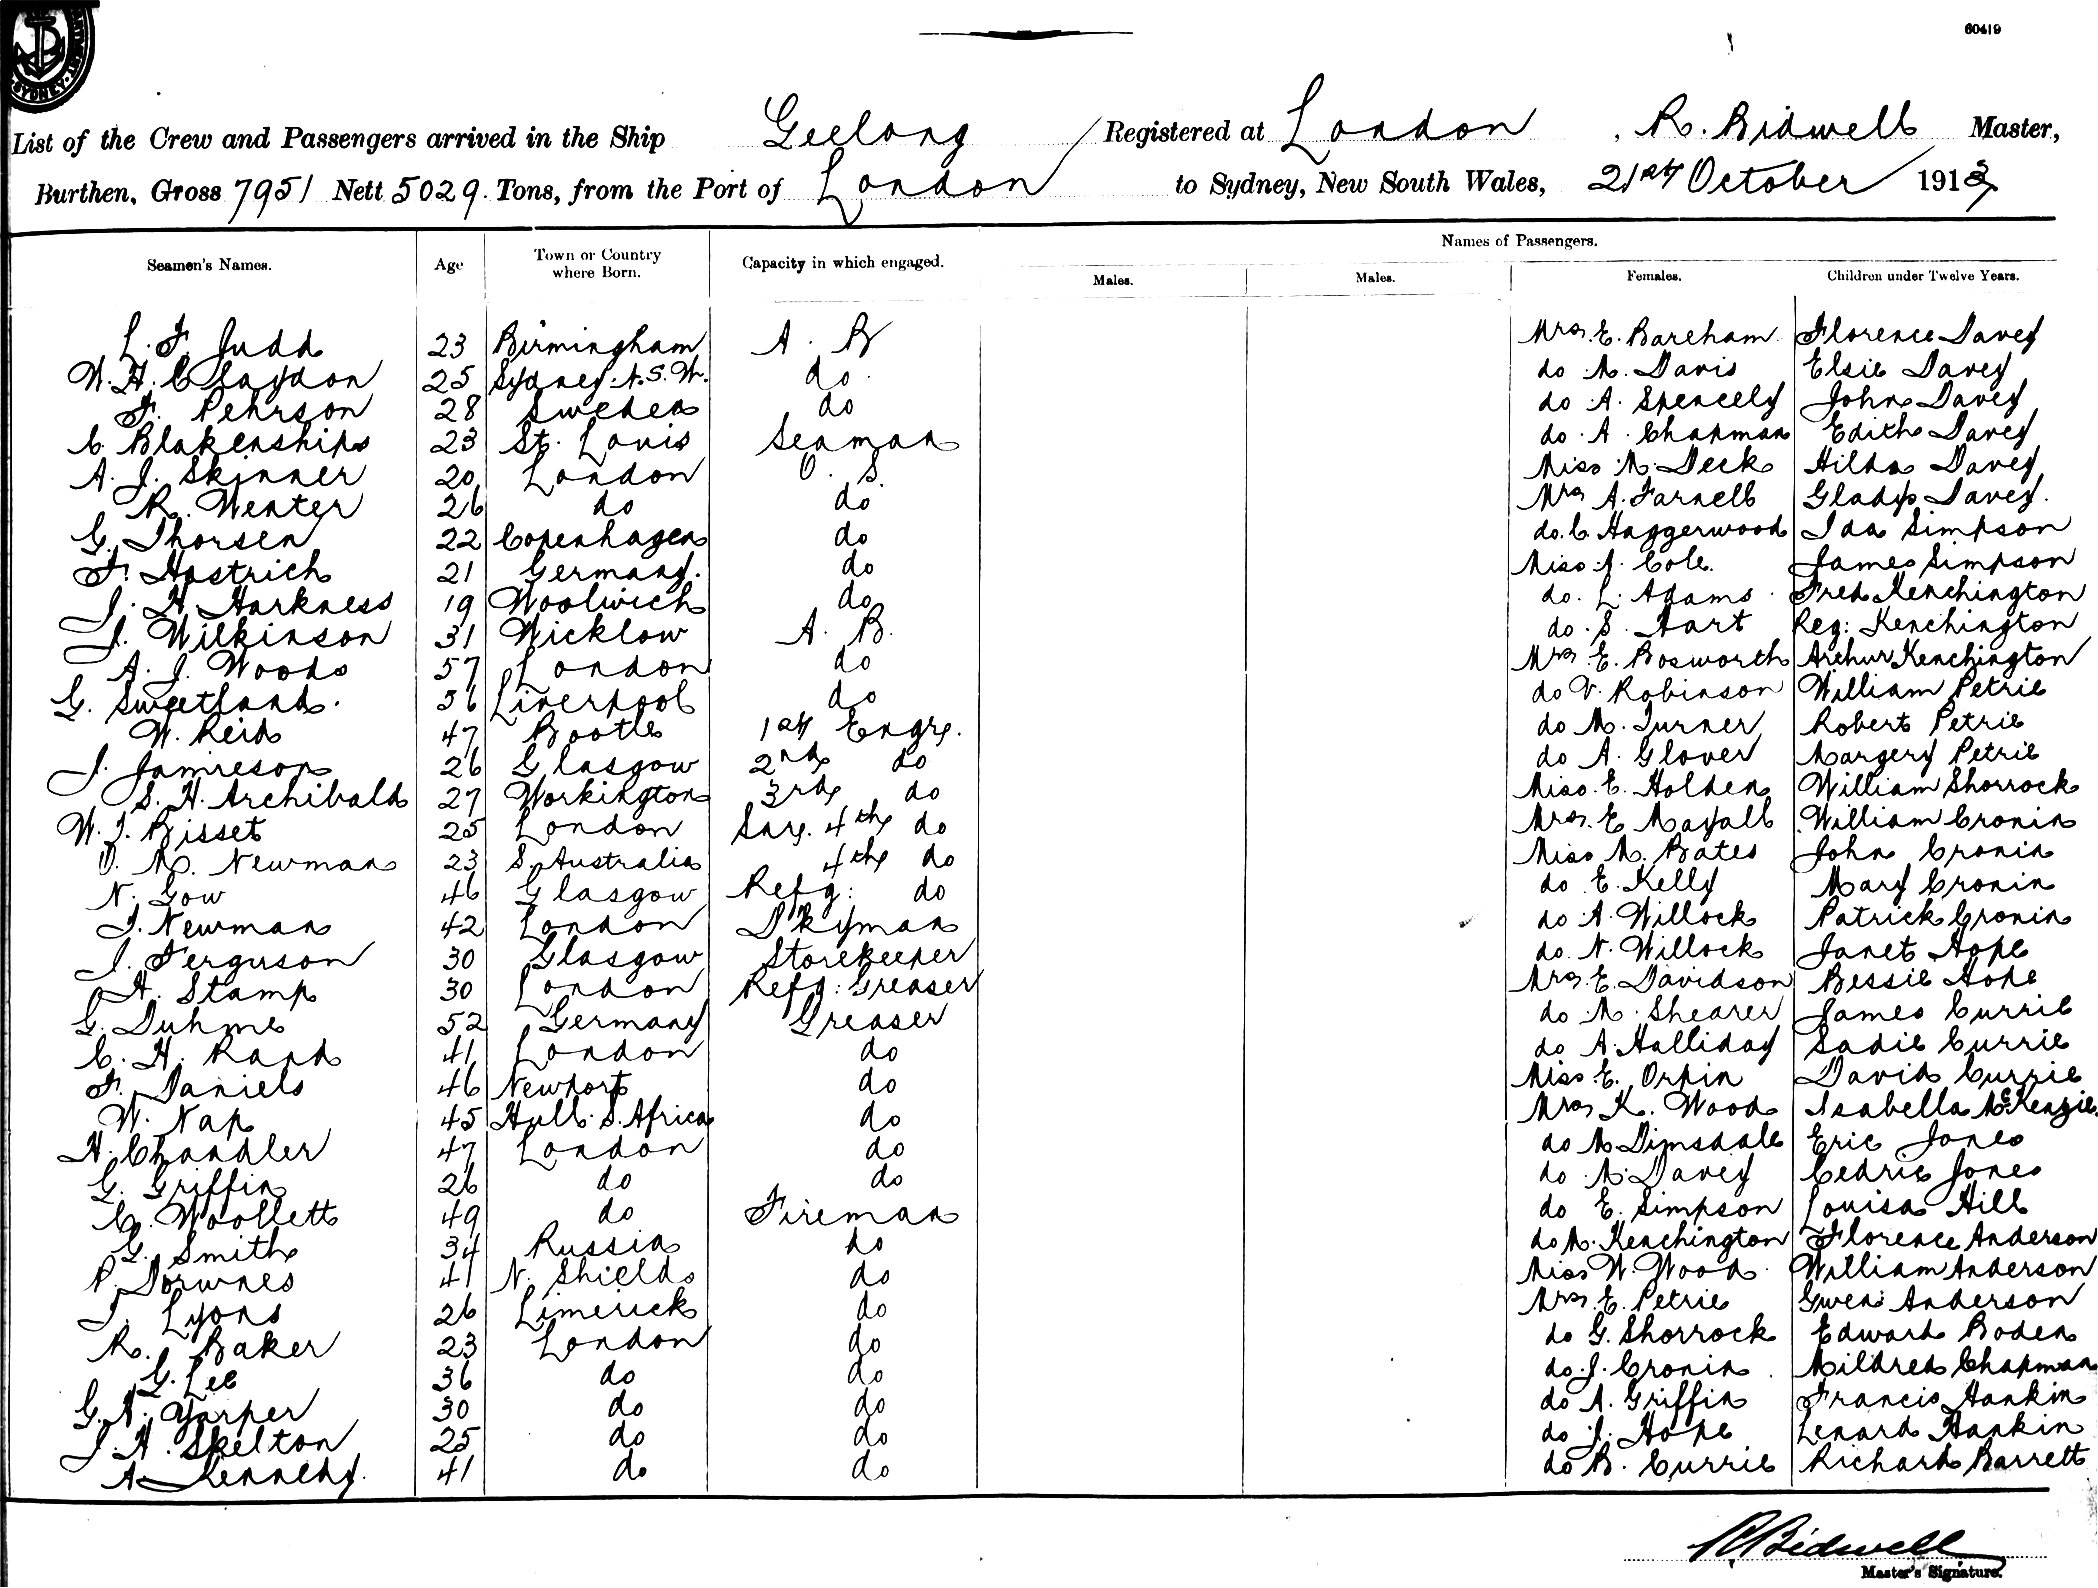 60419
SYDNEY
List of the Crew and Passengers arrived in the Ship Geelong Registered at London, R. Bidwell Master,
Burthen, Gross 7951 Nett 5029. Tons, from the Port of London to Sydney, New South Wales, 21st October 1913
Names of Passengers.
Seamen's Names. Age Town or Country where Born. Capacity in which engaged. Males. Males. Females. Children under Twelve Years.
L. F. Judd 23 Birmingham A. B Mrs. E. Bareham Florence Davey
W. H. Claydon 25 Sydney N.S.W. do do M. Davis Elsie Davey
F. Pehrson 28 Sweden do do A. Spencely John Davey
C. Blakenship 23 St. Louis Seaman do A. Chapman Edith Davey
A. J. Skinner 20 London O. S. Miss M. Deck Hilda Davey
R. Wenter 26 do do Mrs A. Farnell Gladys Davey.
G. Thorsen 22 Copenhagen do do. C. Haggerwood Ida Simpson
F. Hostrich 21 Germany. do Miss A. Cole. James Simpson
J. H. Harkness 19 Woolwich do do. L. Adams Fred Kenchington
J. Wilkinson 31 Wicklow A. B. do. S. Hart Reg: Kenchington
A. J. Woods 57 London do Mrs E. Bosworth Arthur Kenchington
G. Sweetland. 36 Liverpool do do V. Robinson William Petrie
W. Reid 47 Bootle 1st Engr. do M. Turner Robert Petrie
J. Jamieson 26 Glasgow 2nd do do A. Glover Margery Petrie
S. H. Archibald 27 Workington 3rd do Miss. E. Holden William Shorrock
W. J. Bisset 25 London 4th do Mrs. E. Mayall William Cronin
O. M. Newman 23 S. Australia 4th do Miss M. Bates John Cronin
N. Gow 46 Glasgow Refg: do do E. Kelly Mary Cronin
J. Newman 42 London Dkyman do A. Willock Patrick Cronin
J. Ferguson 30 Glasgow Storekeeper do. N. Willock Janet Hope
A. Stamp 30 London Refg: Greaser Mrs E. Davidson Bessie Hope
G. Duhme 52 Germany Greaser do M. Shearer James Currie
C. H. Rand 41 London do do A. Halliday Sadie Currie
F. Daniels 46 Newport do Miss. E. Orpin David Currie
W. Nap 45 Hull S. Africa do Mrs K. Wood Isabella McKenzie
H. Chandler 47 London do do M Dimsdale Eric Jones
G. Griffin 26 do do do M. Davey Cedric Jones
C. Woollett 49 do Fireman do E. Simpson Louisa Hill
G. Smith 34 Russia do do M. Kenchington Florence Anderson
P. Dorwnes 41 N. Shields do Miss W. Wood William Anderson
J. Lyons 26 Limerick do Mrs. E. Petrie Gwen Anderson
R. Baker 23 London do do G. Shorrock Edward Boden
G. Lee 36 do do do J. Cronin Mildred Chapman
G. A. Yarper 30 do do do A. Griffin Francis Hankin
J. H. Skelton 25 do do do J. Hope Lenard Hankin
A Kennedy. 41 do do do B. Currie Richard Barrett
R Bidwell
Master's Signature.